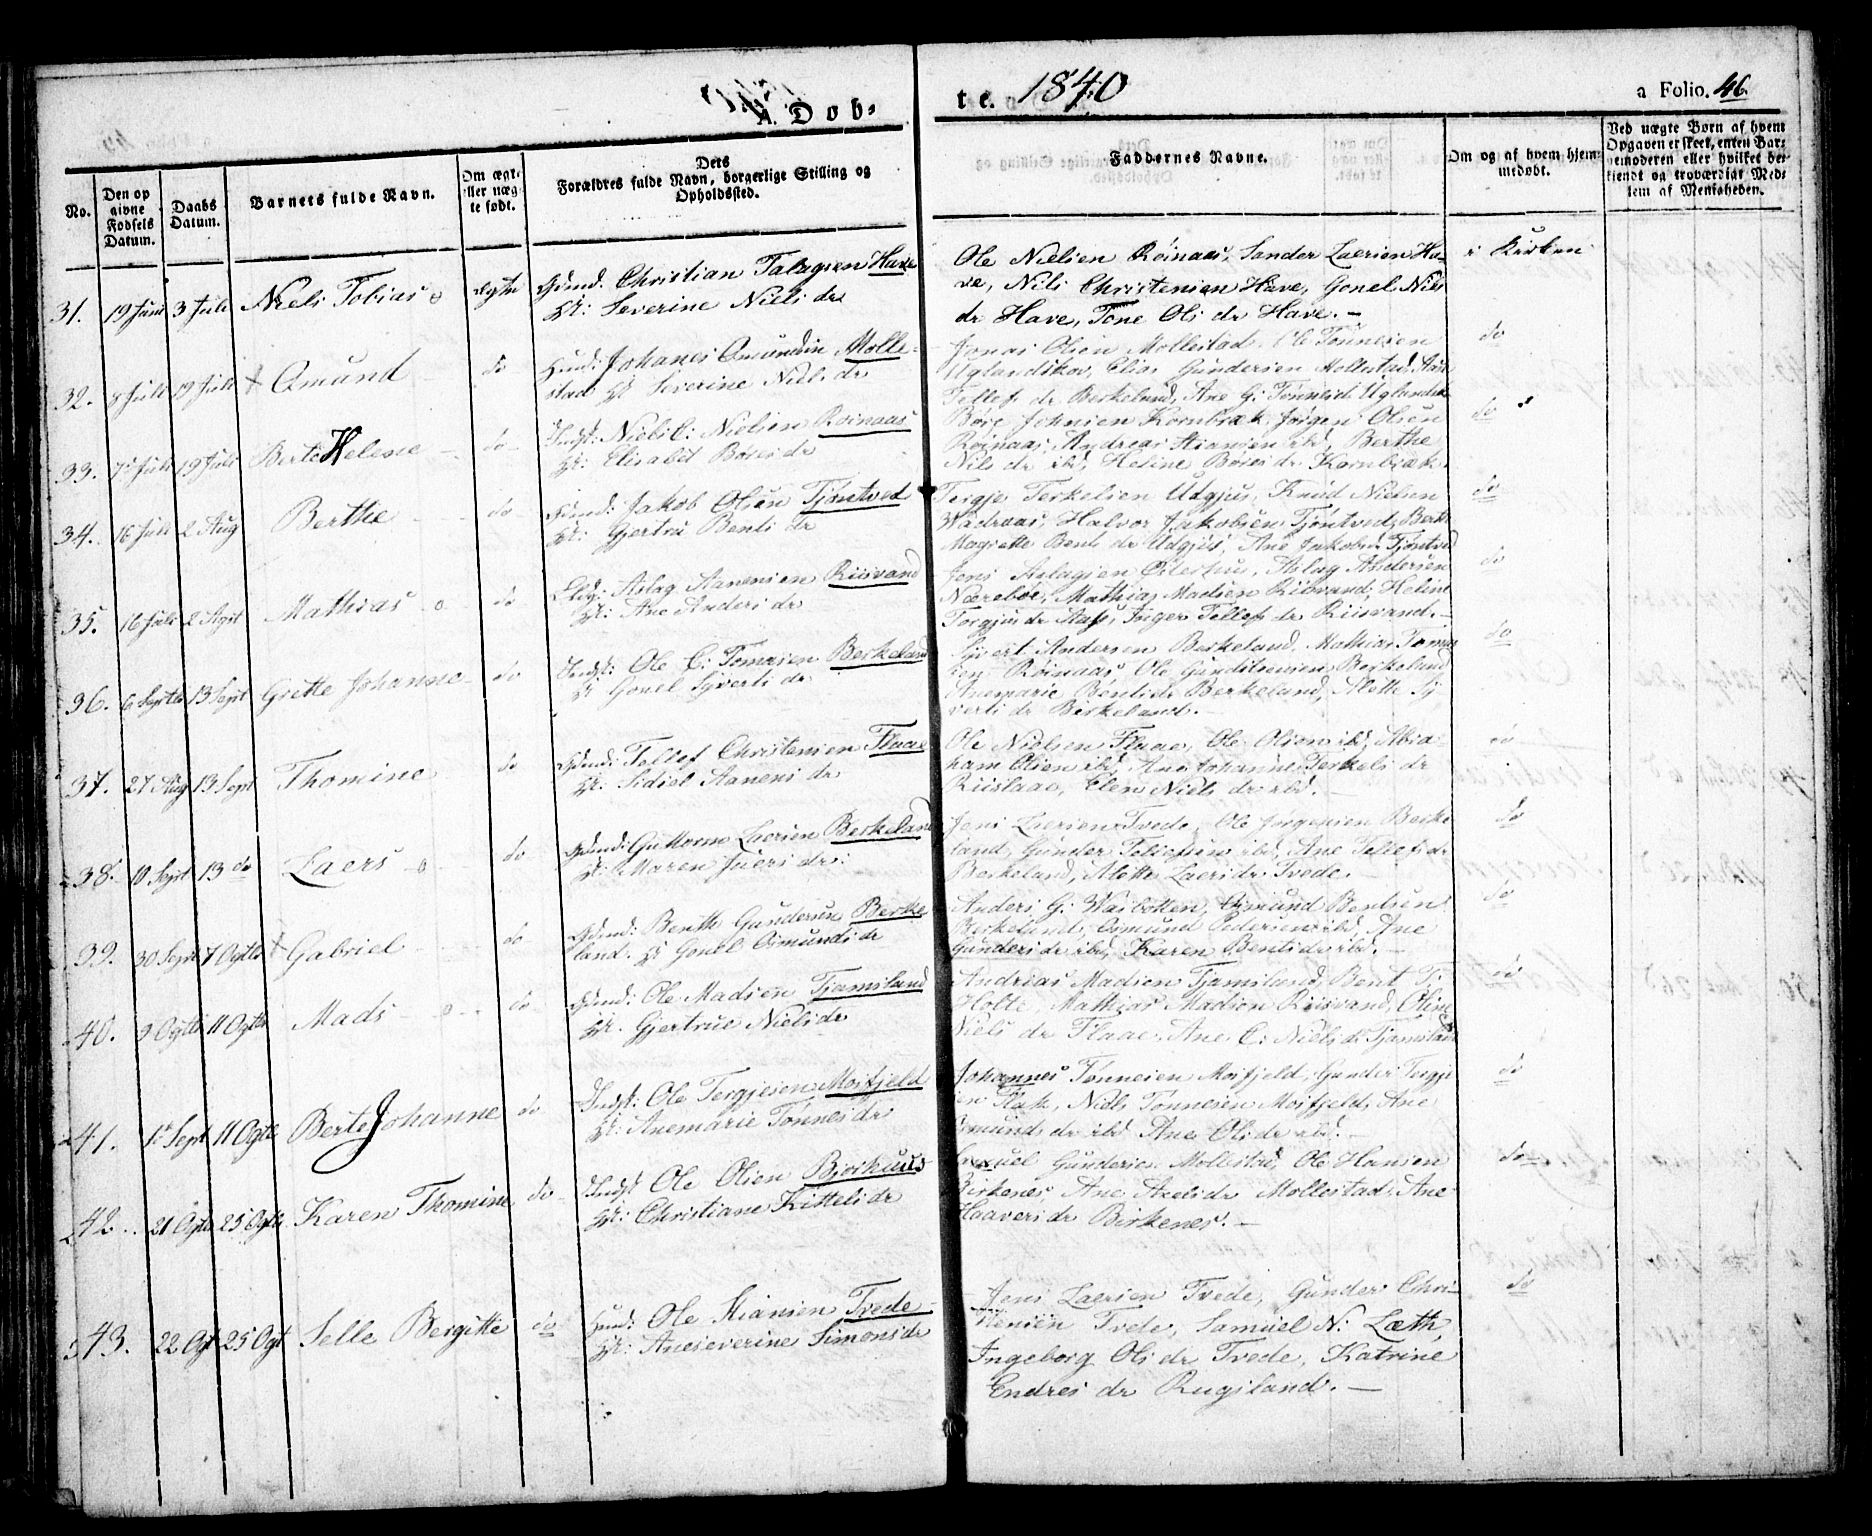 A. Dob-
te. 1840
a Folio. 46.
No.
Den op
givne
Fødsels
Datum.
Daabs
Datum.
Barnets fulde Navn.
Om ægte
eller uæg-
te født.
Dets
Forældres fulde Navn, borgerlige Stilling og
Opholdssted.
Faddernes Navne.
Om og af hvem hjem-
medøbt.
Ved uægte Børn af hvem
Opgaven er skeet, enten Bar-
nemoderen eller hvilket be-
kiendt og troværdigt Med-
lem af Menigheden.
31. 19 Juni 3 Juli Niels Tobias o ægte
Gdmd. Christian Salvesen Have
H: Severine Niels dr
Ole Nielsen Røinaas, Sander Laersen Ha-
ve, Nils Christensen Have, Gonel Niels
dr Have, Tone Ols dr Have. —
i Kirken
32. 8 Juli 19 Juli Amund do
Huusd: Johanes Omundsen Molle-
stad H: Siverine Niels dr
Jonas Olsen Mollestad, Ole Tønnesen
Uglandskov, Elias Gundersen Mollestad,
Tellefs dr Berkeland, Ane G: Tønnes d.
do
33. 7de Juli 19 Juli Berte Helene do
Indst: Niels C: Nielsen Røinaas
H: Elisabet Børes dr
Børe Johnsen Kornbræk, Jørgen Olsen
Røinaas, Andreas Stiansen ibd, Berthe
Nils dr ibd, Heline Børes dr Kornbræk.
do
34. 16 Juli 2 Aug Berthe do
Jakob Olsen Tjøntved
H: Gjertru Bents dr
Tergje Terkelsen Udgjus, Knud Nielsen
Halvor Jakobsen Tjøntved, Berte
Magrette Bents dr Udgjus, Ane Jakobs dr Tjøntved
do
35. 16 Juli 2 Agst Mathias o do
Aslag Aanensen Riisvand
H: Ane Anders dr
Jens Aslagsen Østerhus, Aslag Andersen
Nærebøe, Mathias Madsen Riisvand, Heline
Torgjus dr Aas, Inger Tellefs dr Riisvand. —
do
36. 6 Septb 13 Sept Grette Johanne do
Indst: Ole C: Tomasen Berkeland
H: Gonel Syverts dr
Syvert Andersen Berkeland, Mathias Tomas-
sen Røinaas, Ole Gunditensen Berkeland
Anemarie Bents dr Berkeland, Alette Sy-
verts dr Birkeland. —
do
37. 27 Aug 13 Sept Thomine do
Gdmd: Tellef Christensen Flaae
H: Sidsel Aanens dr
Ole Nielsen Flaae, Ole Olsen ibd, Abra-
ham Olsen ibd, Ane Johanne Terkels dr
Riislaae, Elen Niels dr ibd. —
do
38. 10 Sept 13 do Laers o do
Gdmd: Guttorm Laersen Berkeland
H: Maren Juers dr:
Jens Laersen Tvede, Ole Jørgensen Berke-
land, Gunder Tellefsen ibd, Ane Tellefs dr
Berkeland, Alette Laers dr Tvede. —
do
39. 30 Sept 7 Ogtb Gabriel do
Gdmd: Benth Gundersen Berke-
land. H: Gonel Osmunds dr
Anders G: Vasbotten, Osmund Bentsen
Berkeland, Osmund Pedersen ibd, Ane
Gunders dr ibd, Karen Bents dr ibd. —
do
40. 9 Ogtb 11 Ogtb Mads o do
Gdmd: Ole Madsen Tjamsland
H: Gjertrue Niels dr
Andreas Madsen Tjamsland, Bent T:
Holte, Mathias Madsen Riisvand, Oline
Niels dr Flaae, Ane C: Niels dr Tjamsland
do
41. 1st Sept 11 Ogtb Berte Johanne do
Indst: Ole Tergjesen Mosfjeld
H: Anemarie Tønnes dr
Johannes Tønnesen Mosfjeld, Gunder Tergje-
sen Flak, Niels Tønnesen Mosfjeld, Ane
Omunds dr ibd Ane Ols dr ibd. —
do
42. 21 Ogtb 25 Ogtb Karen Thomine do
Indst Ole Olsen Bjorkuus
H: Christiane Kittels dr
Samuel Gundersen Mollestad, Ole Hansen
Birkenes, Ane Axels dr Mollestad, Ane
Haavers dr Birkenes. —
do
43. 22 Ogt 25 Ogt Selle Bergitte do
Huusd: Ole Stiansen Tvede
H: Aneseverine Simons dr
Jens Laersen Tvede, Gunder Chri-
stensen Tvede, Samuel N: Læth,
Ingeborg Ols dr Tvede, Katrine
Endres dr Rugsland. —
do